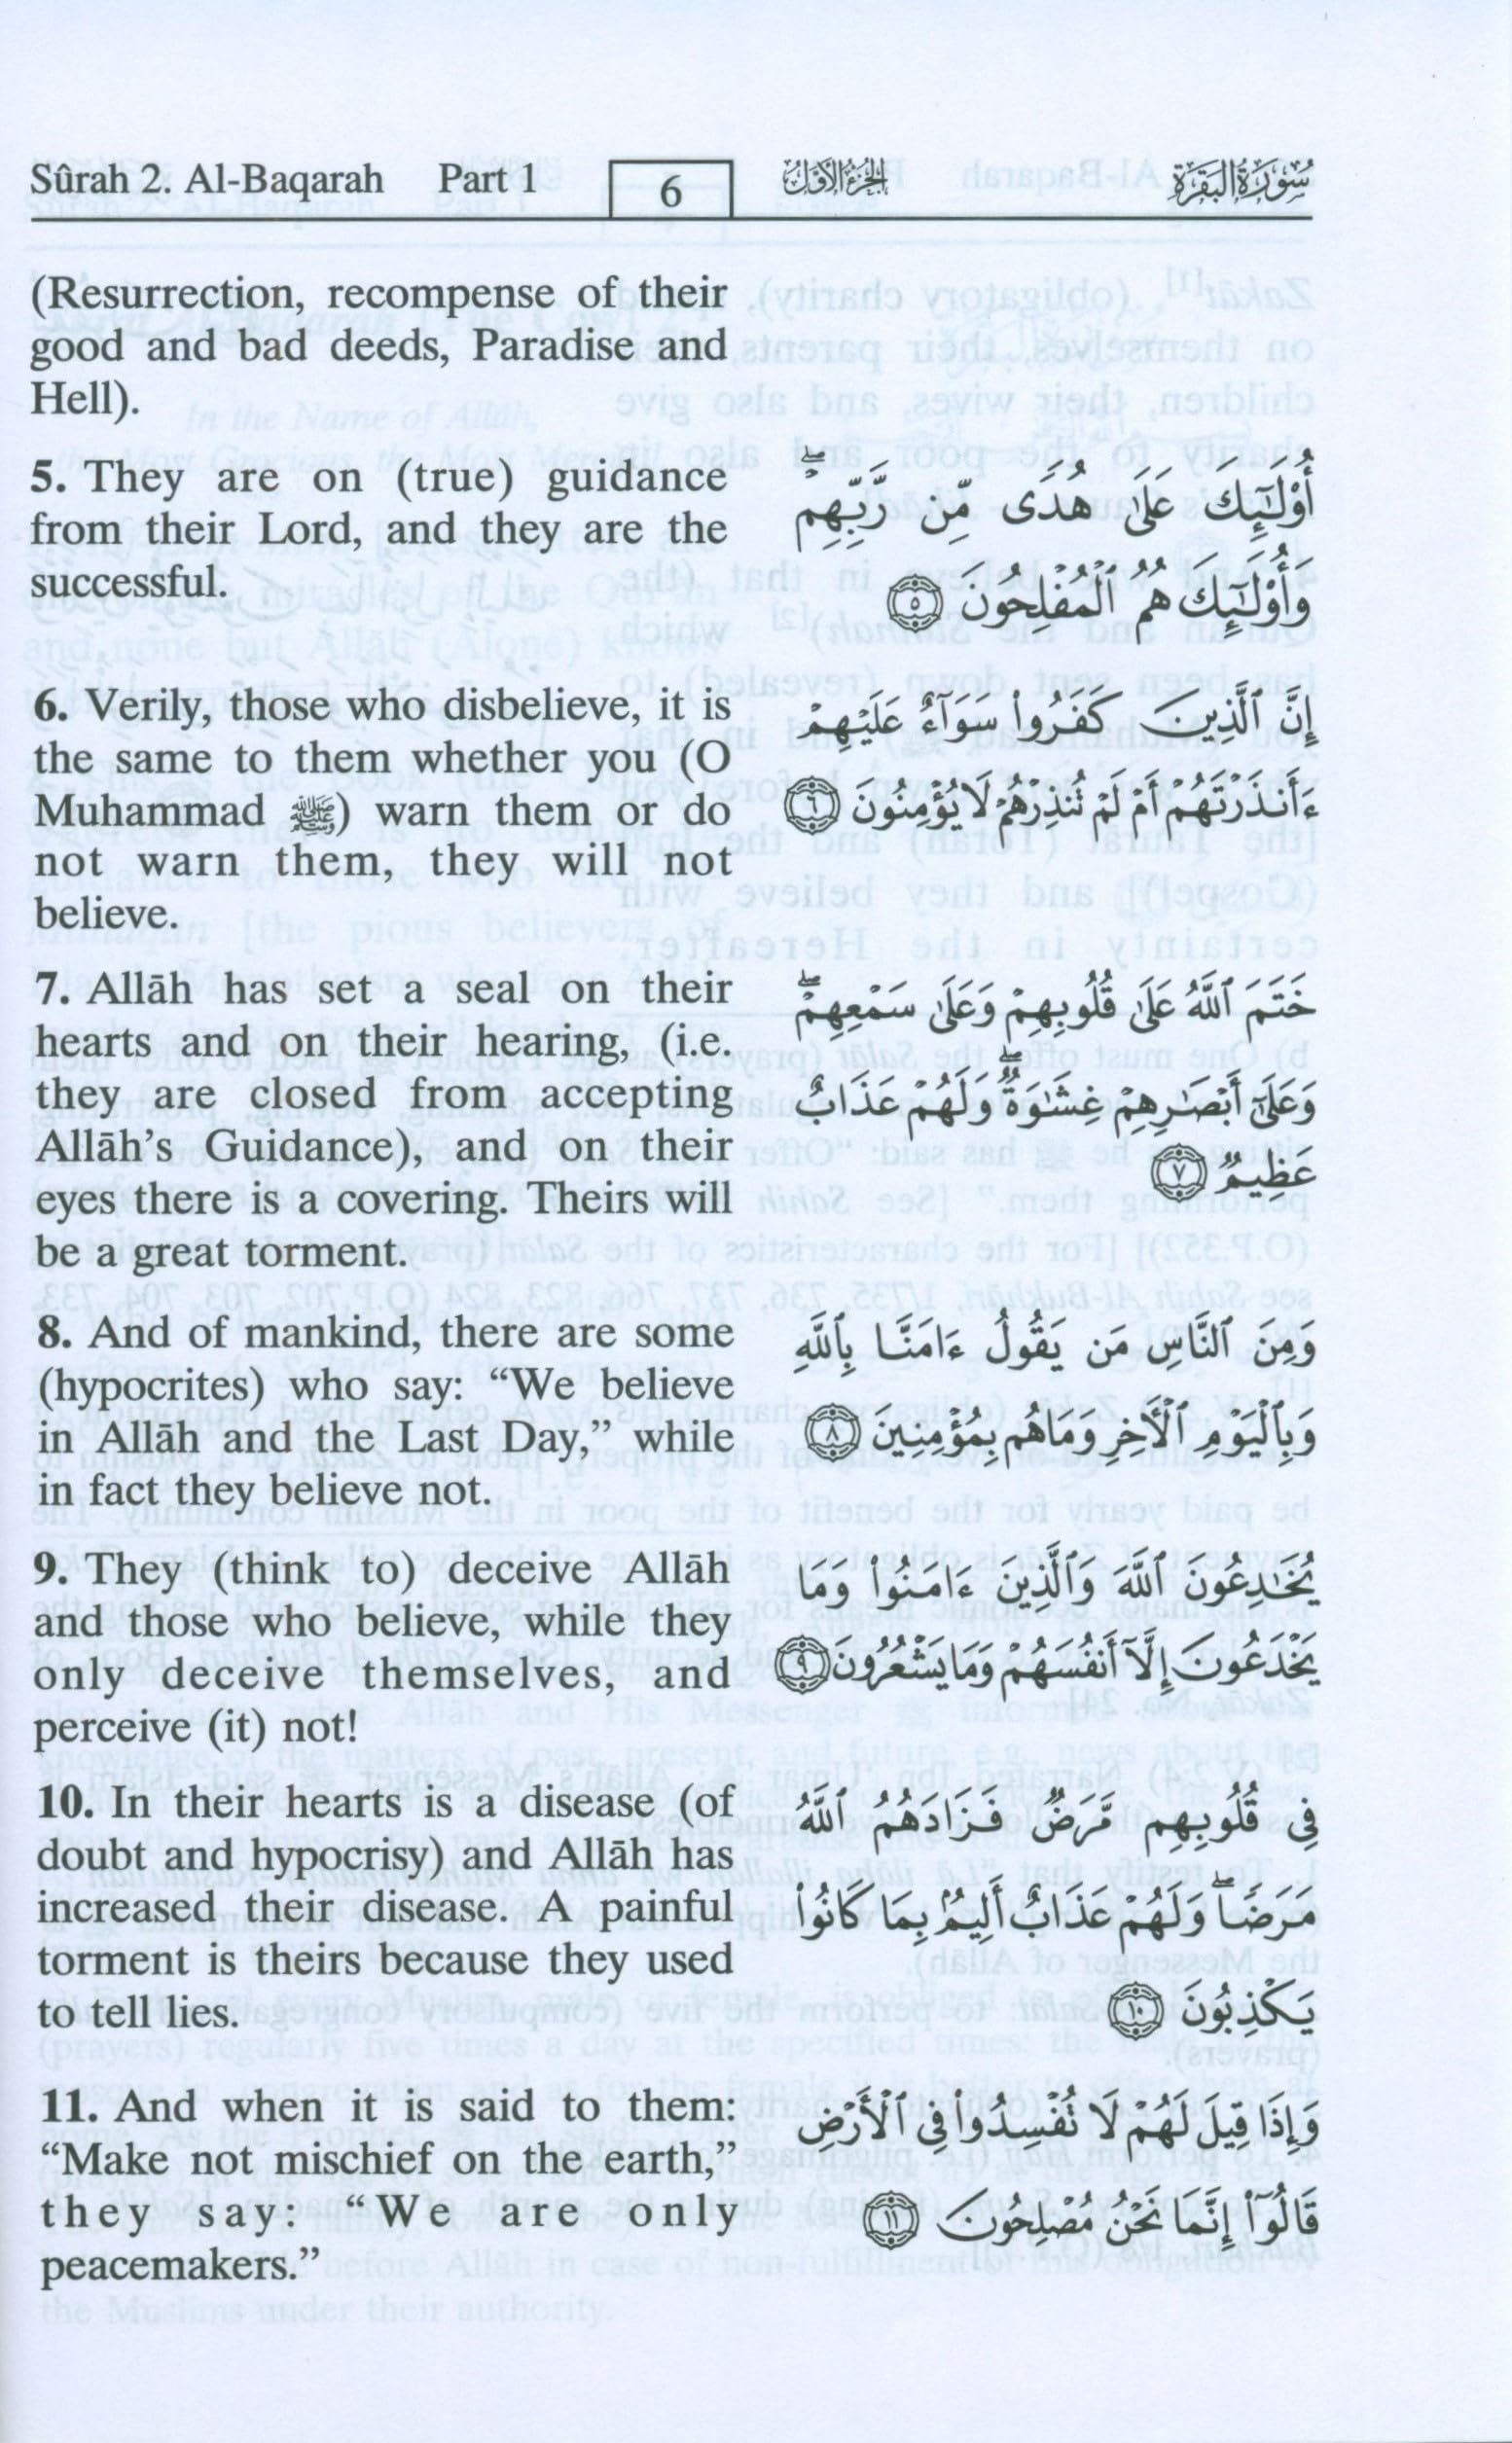 Sûrah 2. Al-Baqarah Part 1 6 الجزء الأول سورة البقرة
(Resurrection, recompense of their
good and bad deeds, Paradise and
Hell).
5. They are on (true) guidance
from their Lord, and they are the
successful.
أُوْلَٰٓئِكَ عَلَىٰ هُدًى مِّن رَّبِّهِمْ ۖ
وَأُوْلَٰٓئِكَ هُمُ ٱلْمُفْلِحُونَ ٥
6. Verily, those who disbelieve, it is
the same to them whether you (O
Muhammad ﷺ) warn them or do
not warn them, they will not
believe.
إِنَّ ٱلَّذِينَ كَفَرُواْ سَوَآءٌ عَلَيْهِمْ
ءَأَنذَرْتَهُمْ أَمْ لَمْ تُنذِرْهُمْ لَا يُؤْمِنُونَ ٦
7. Allāh has set a seal on their
hearts and on their hearing, (i.e.
they are closed from accepting
Allāh’s Guidance), and on their
eyes there is a covering. Theirs will
be a great torment.
خَتَمَ ٱللَّهُ عَلَىٰ قُلُوبِهِمْ وَعَلَىٰ سَمْعِهِمْ ۖ
وَعَلَىٰٓ أَبْصَٰرِهِمْ غِشَٰوَةٌ ۖ وَلَهُمْ عَذَابٌ
عَظِيمٌ ٧
8. And of mankind, there are some
(hypocrites) who say: “We believe
in Allāh and the Last Day,” while
in fact they believe not.
وَمِنَ ٱلنَّاسِ مَن يَقُولُ ءَامَنَّا بِٱللَّهِ
وَبِٱلْيَوْمِ ٱلْأَخِرِ وَمَا هُم بِمُؤْمِنِينَ ٨
9. They (think to) deceive Allāh
and those who believe, while they
only deceive themselves, and
perceive (it) not!
يُخَٰدِعُونَ ٱللَّهَ وَٱلَّذِينَ ءَامَنُواْ وَمَا
يَخْدَعُونَ إِلَّآ أَنفُسَهُمْ وَمَا يَشْعُرُونَ ٩
10. In their hearts is a disease (of
doubt and hypocrisy) and Allāh has
increased their disease. A painful
torment is theirs because they used
to tell lies.
فِى قُلُوبِهِم مَّرَضٌ فَزَادَهُمُ ٱللَّهُ
مَرَضًا ۖ وَلَهُمْ عَذَابٌ أَلِيمٌۢ بِمَا كَانُواْ
يَكْذِبُونَ ١٠
11. And when it is said to them:
“Make not mischief on the earth,”
they say: “We are only
peacemakers.”
وَإِذَا قِيلَ لَهُمْ لَا تُفْسِدُواْ فِى ٱلْأَرْضِ
قَالُوٓاْ إِنَّمَا نَحْنُ مُصْلِحُونَ ١١